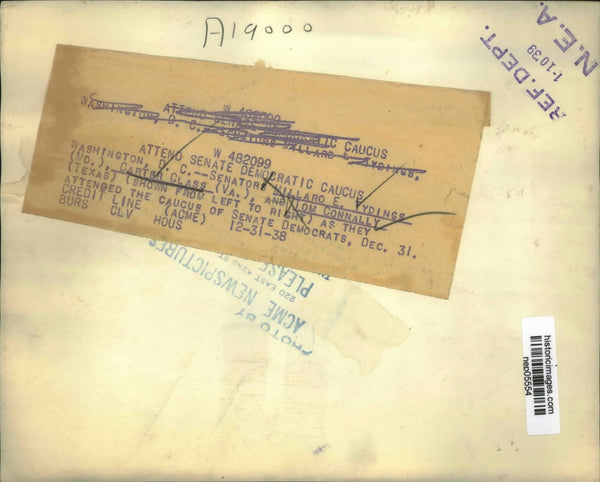 A19000
REF. DEPT.
1-10'39
N.E.A.
W 482099
ATTEND SENATE DEMOCRATIC CAUCUS
WASHINGTON, D. C.--SENATORS MILLARD E. TYDINGS,
W 482099
ATTEND SENATE DEMOCRATIC CAUCUS
WASHINGTON, D. C.--SENATORS MILLARD E. TYDINGS
(MD.), CARTER GLASS (VA.), AND TOM CONNALLY
(TEXAS) (SHOWN FROM LEFT TO RIGHT) AS THEY
ATTENDED THE CAUCUS OF SENATE DEMOCRATS, DEC. 31.
CREDIT LINE (ACME)
BURS CLV HOUS 12-31-38
PLEASE
220 EAST 42ND ST
ACME NEWSPICTURES
PHOTO BY
historicimages.com
nep05554